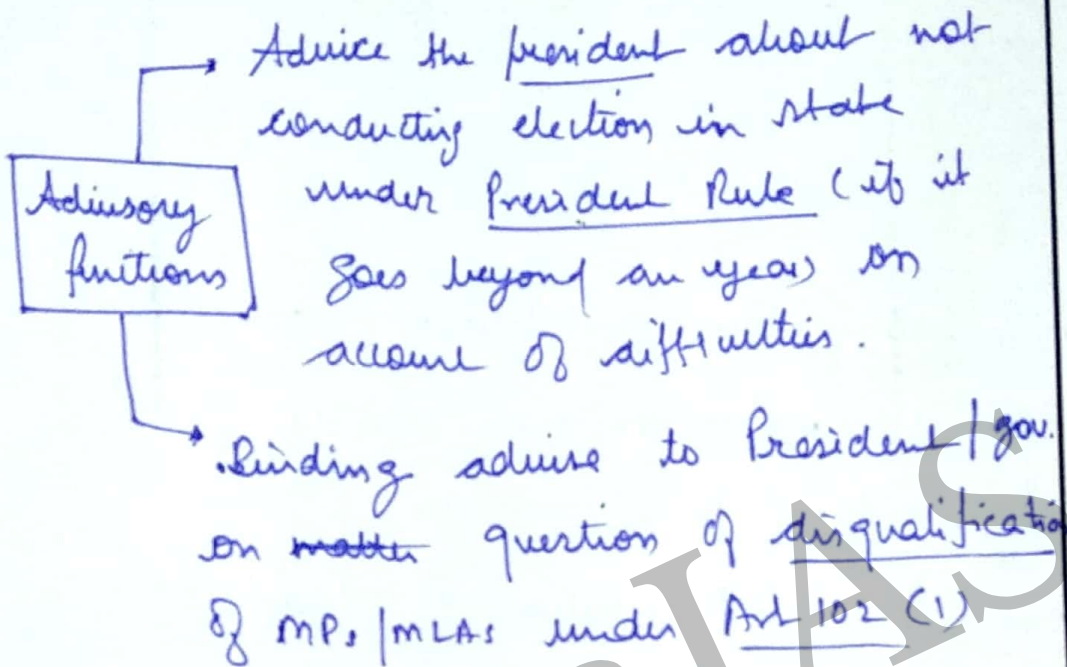 Advice the president about not
conducting election in state
under President Rule (if it
goes beyond an year) on
account of difficulties.
Advisory
functions
Binding advise to President/gov.
on matter question of disqualification
of MPs/MLAs under Art 102 (1)
IAS